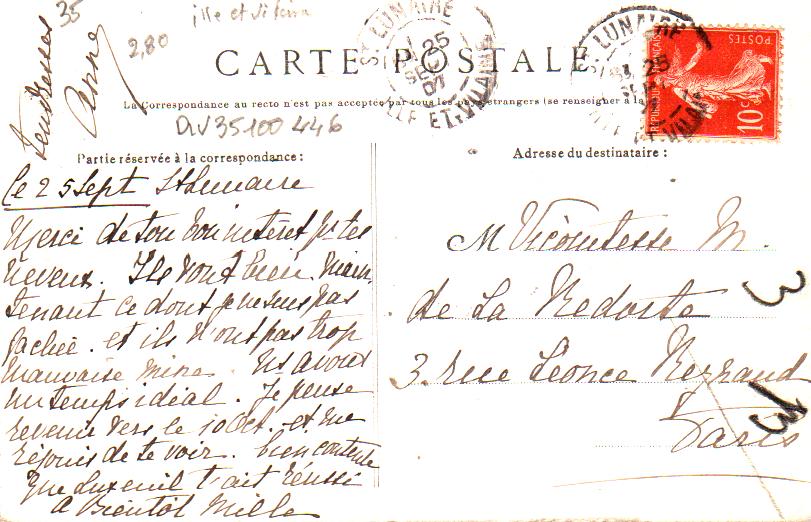 35
ille et vilaine
2,80
Tendresses
Anne
CARTE POSTALE
La Correspondance au recto n'est pas acceptée par tous les pays étrangers (se renseigner à la
DIV35100446
ST LUNAIRE
25
SEPT
07
ILLE ET VILAINE
ST LUNAIRE
25
POSTES
10c
Partie réservée à la correspondance :
Ce 25 Sept St Lunaire
Merci de ton bon interet pr tes
neveux. Ils vont bien main
tenant ce dont je ne suis pas
fachée. et ils n'ont pas trop
mauvaise mine. Ns avons
un temps idéal. Je pense
revenir vers le 10 Oct. et me
réjouis de te voir. bien contente
que Luxeuil t'ait réussi
A Bientôt Mille
Adresse du destinataire :
M Vicomtesse M.
de La Redorte
3. rue Léonce Reynaud
Paris
3
13